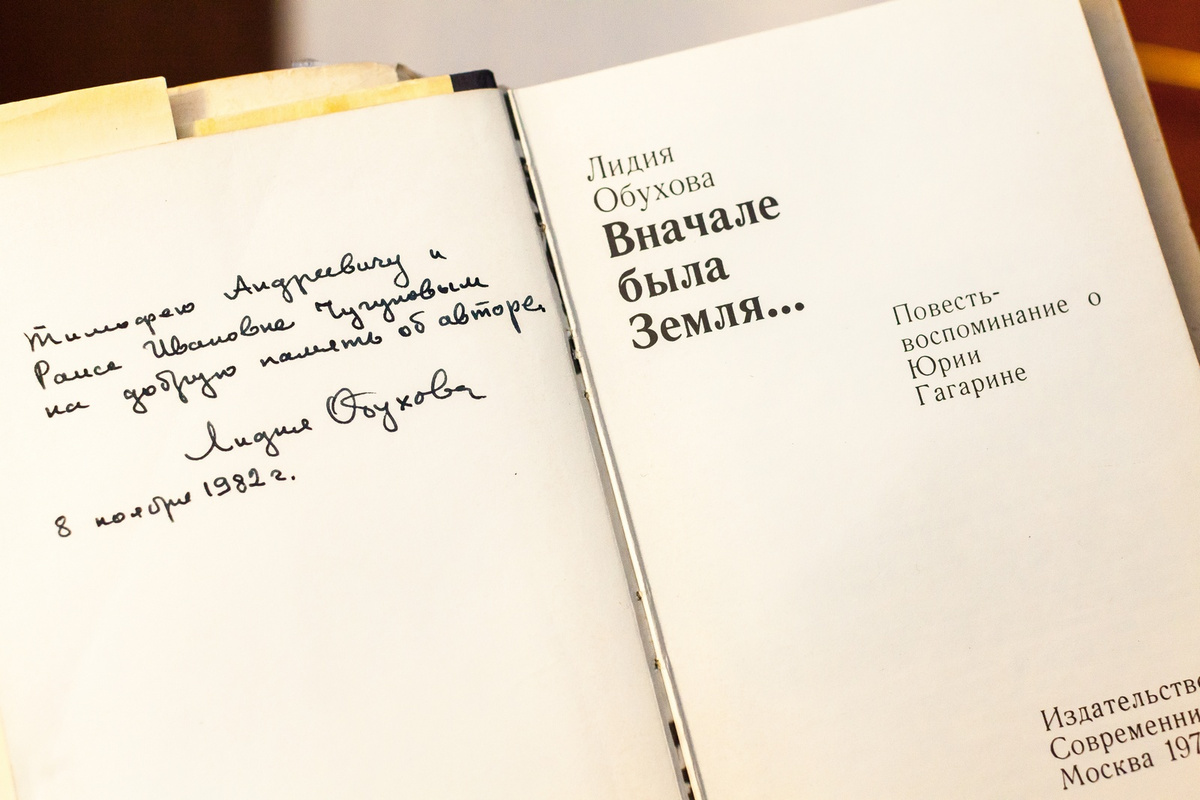 Тимофею Андреевичу и
Раисе Ивановне Чугуновым
на добрую память об авторе.
Лидия Обухова
8 ноября 1982 г.
Лидия
Обухова
Вначале
была
Земля...
Повесть-
воспоминание о
Юрии
Гагарине
Издательство
Современни
Москва 197